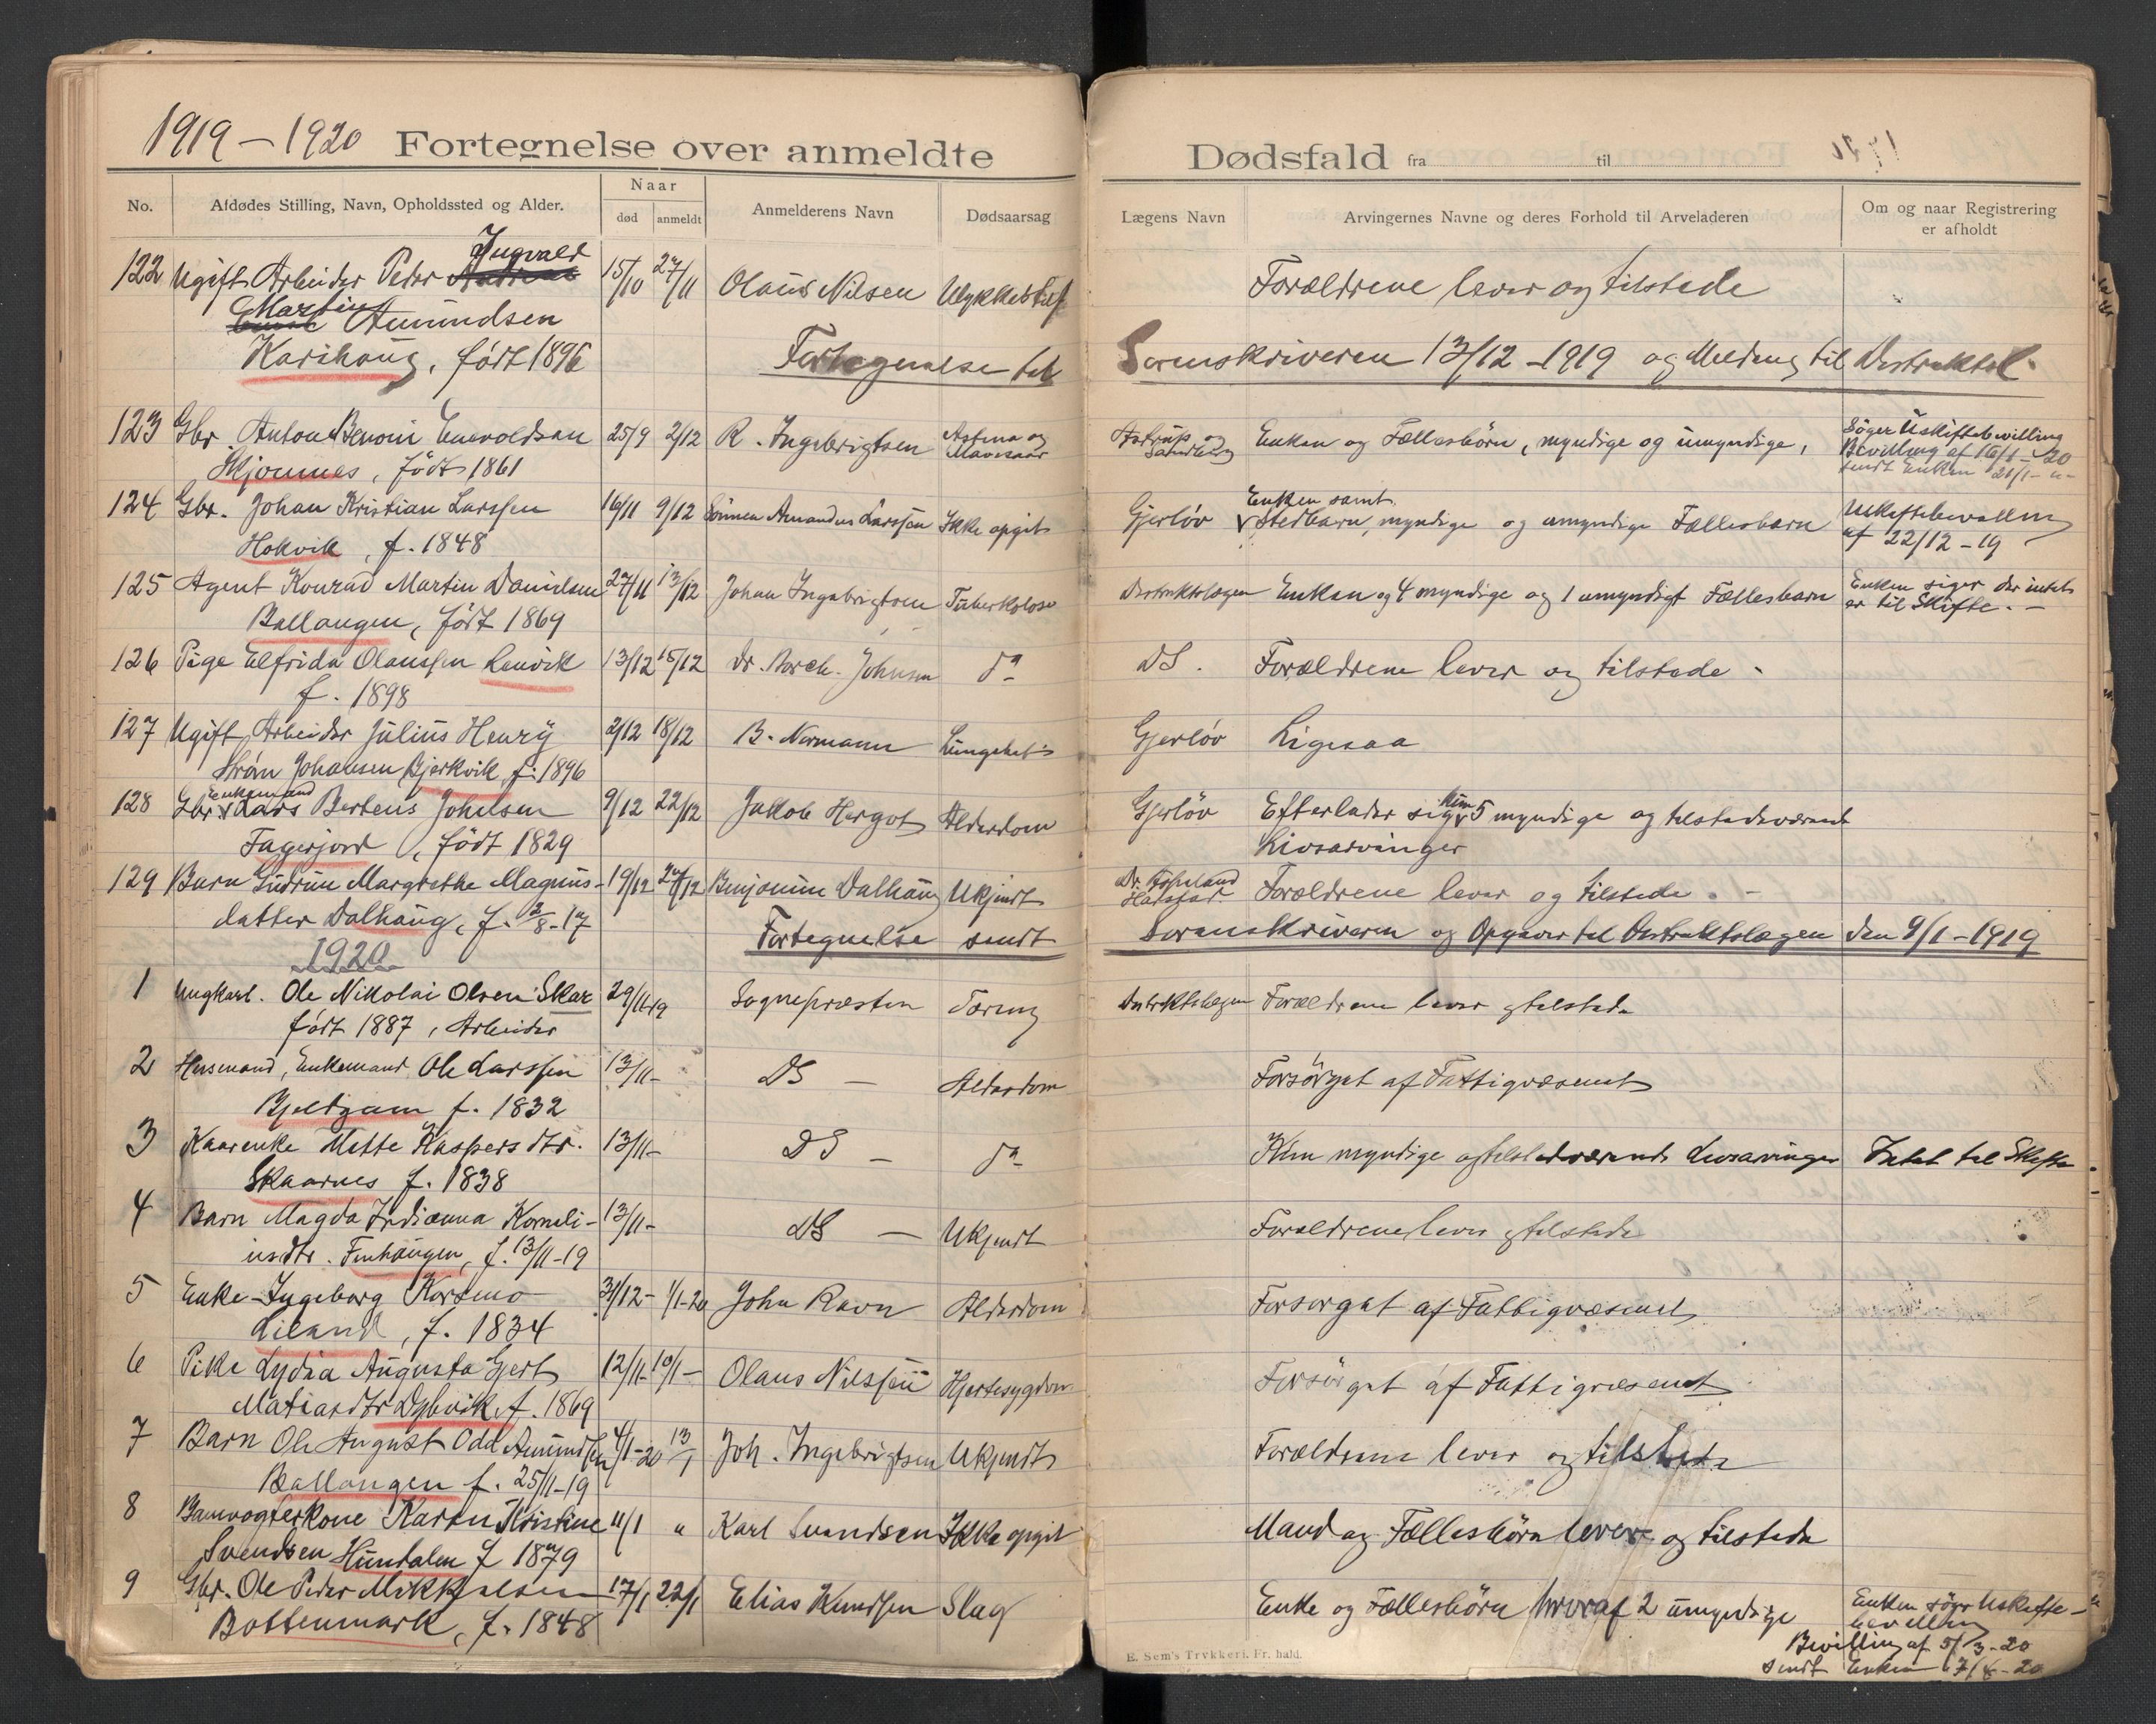 1919 – 1920 Fortegnelse over anmeldte Dødsfald fra til
No. Afdødes Stilling, Navn, Opholdssted og Alder. Naar død anmeldt Anmelderens Navn Dødsaarsag Lægens Navn Arvingernes Navne og deres Forhold til Arveladeren Om og naar Registrering er afholdt
Ingvald
122 Ugift Arbeider Peder 15/10 27/11 Olaus Nilsen Ulykkestilf Forældrene lever og tilstede
Martin Amundsen
Karihaug, født 1896 Fortegnelse til Sorenskriveren 13/12 – 1919 og Melding til Distriktsl.
123 Gbr. Anton Benoni Enevoldsen 25/9 2/12 R. Ingebrigtsen Astma og Mavesaar Enken og Fællesbörn, myndige og umyndige, Söger Uskiftebevilling
Skjomnes, født 1861 Bevilling af 16/1 – 20
sendt Enken 21/1 – "-
124 Gbr. Johan Kristian Larssen 16/11 9/12 Sönnen Amandus Larssen Ikke opgit Gjerløv Enken samt Stedbarn, myndige og umyndige Fællesbarn Uskiftebevilling
Hokvik, f. 1848 af 22/12 – 19
125 Agent Konrad Martin Danielsen 27/11 13/12 Johan Ingebrigtsen Tuberkolose Distriktslægen Enken og 4 myndige og 1 umyndigt Fællesbarn Enken siger der intet
Ballangen, født 1869 er til Skifte. –
126 Pige Elfrida Olaussen Lenvik 13/12 15/12 Dr. Borch-Johnsen do DS. Forældrene lever og tilstede.
f. 1898
127 Ugift Arbeider Julius Henry 2/12 18/12 B. Normann Lungebet. Gjerløv Ligesaa
Strøm Johansen Bjerkvik, f. 1896
128 Gbr. Enkemand Lars Berteus Johnsen 9/12 22/12 Jakob Hergot Alderdom Gjerløv Efterlader sig kun 5 myndige og tilstedeværende
Fagerjord, født 1829 Livsarvinger
129 Barn Gudrun Margrethe Magnus- 19/12 27/12 Benjamin Dalhaug Ukjendt Dr. Harstad Forældrene lever og tilstede. –
datter Dalhaug, f. 2/8 – 17 Fortegnelse sendt Sorenskriveren og Opgaver til Distriktslægen den 9/1 – 1919
1920
1 Ungkarl. Ole Nikolai Olsen Skar 29/11 19 Sognepræsten Tæring Distriktslægen Forældrene lever og tilstede
født 1887, Arbeider
2 Husmand, Enkemand Ole Larssen 13/11 – DS – Alderdom Forsörget af Fattigvæsenet
Bjeldgam f. 1832
3 Kaarenke Mette Kaspersdtr. 13/11 – DS – do Kun myndige og tilstedeværende Livsarvinger Intet til Skifte
Skaarnes f. 1838
4 Barn Magda Indianna Korneli- 13/11 – DS – Ukjendt Forældrene lever og tilstede
usdtr. Finhaugen, f. 13/11 – 19
5 Enke Ingeborg Korsmo 31/12 – 1/1 – 20 John Ravn Alderdom Forsørget af Fattigvæsenet
Liland, f. 1834
6 Pike Lydia Augusta Gjert 12/11 – 10/1 – Olaus Nilssen Hjertesygdom Forsörget af Fattigvæsenet
Matiasdtr Dybvik, f. 1869
7 Barn Ole August Odd Amundsen 4/1 – 20 13/1 Joh. Ingebrigtsen Ukjendt Forældrene lever og tilstede
Ballangen f. 25/11 – 19
8 Banevogterkone Karen Kristine 11/1 " Karl Svendsen Ikke opgit Mand og Fællesbörn lever og tilstede
Svendsen Hundalen f 1879
9 Gbr. Ole Peder Mikkelsen 17/1 22/1 Elias Knudsen Slag Enke og Fællesbörn hvoraf 2 umyndige Enken søger Uskifte-
Bottenmark, f. 1848 bevilling
Bevilling af 5/3 – 20
sendt Enken 17/4 – 20
E. Sem's Trykkeri, Fr. hald.